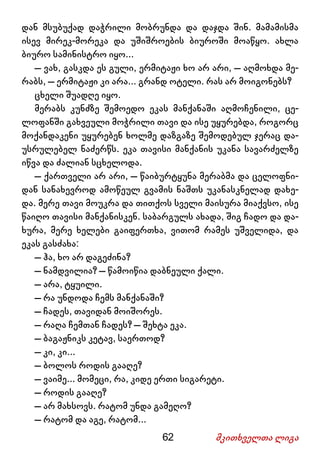 დან მსუბუქად დაჭრილი მობრუნდა და დაჯდა შინ. მამამისმა
ისევ მირეკ-მორეკა და უშიშროების ბიუროში მოაწყო. ახლა
ბიურო სამინისტრო იყო...
— ვახ, გასკდა ეს გული, ერმიტაჟი ხო არ არი, — აღმოხდა მე-
რაბს, — ერმიტაჟი კი არა... გრანდ ოტელი. რას არ მოიგონებს?
ცხელი შუადღე იყო.
მერაბს კუნძზე შემოედო ეკას მანქანაში აღმოჩენილი, ცე-
ლოფანში გახვეული მოჭრილი თავი და ისე უყურებდა, როგორც
მოქანდაკენი უყურებენ ხოლმე დაზგაზე შემოდებულ ჯერაც და-
უსრულებელ ნაძერწს. ეკა თავისი მანქანის უკანა სავარძელზე
იწვა და ძალიან სცხელოდა.
— ქართველი არ არი, — წაიბურტყუნა მერაბმა და ცელოფნი-
დან სანახევროდ ამოწეულ გვამის ნაშთს უკანასკნელად დახე-
და. მერე თავი მოუკრა და თითქოს სველი მაისურა მიაქვსო, ისე
წაიღო თავისი მანქანისკენ. საბარგულს ახადა, შიგ ჩადო და და-
ხურა, მერე ხელები გაიფერთხა, ვითომ რამეს უშველიდა, და
ეკას გასძახა:
— ჰა, ხო არ დაგეძინა?
— ნამდვილია? — წამოიწია დაბნეული ქალი.
— არა, ტყუილი.
— რა უნდოდა ჩემს მანქანაში?
— ჩადეს, თავიდან მოიშორეს.
— რაღა ჩემთან ჩადეს? — შეხტა ეკა.
— ბაგაჟნიკს კეტავ, საერთოდ?
— კი, კი...
— ბოლოს როდის გააღე?
— ვაიმე... მომეცი, რა, კიდე ერთი სიგარეტი.
— როდის გააღე?
— არ მახსოვს. რატომ უნდა გამეღო?
— რატომ და აგე, რატომ...
62 მკითხველთა ლიგა